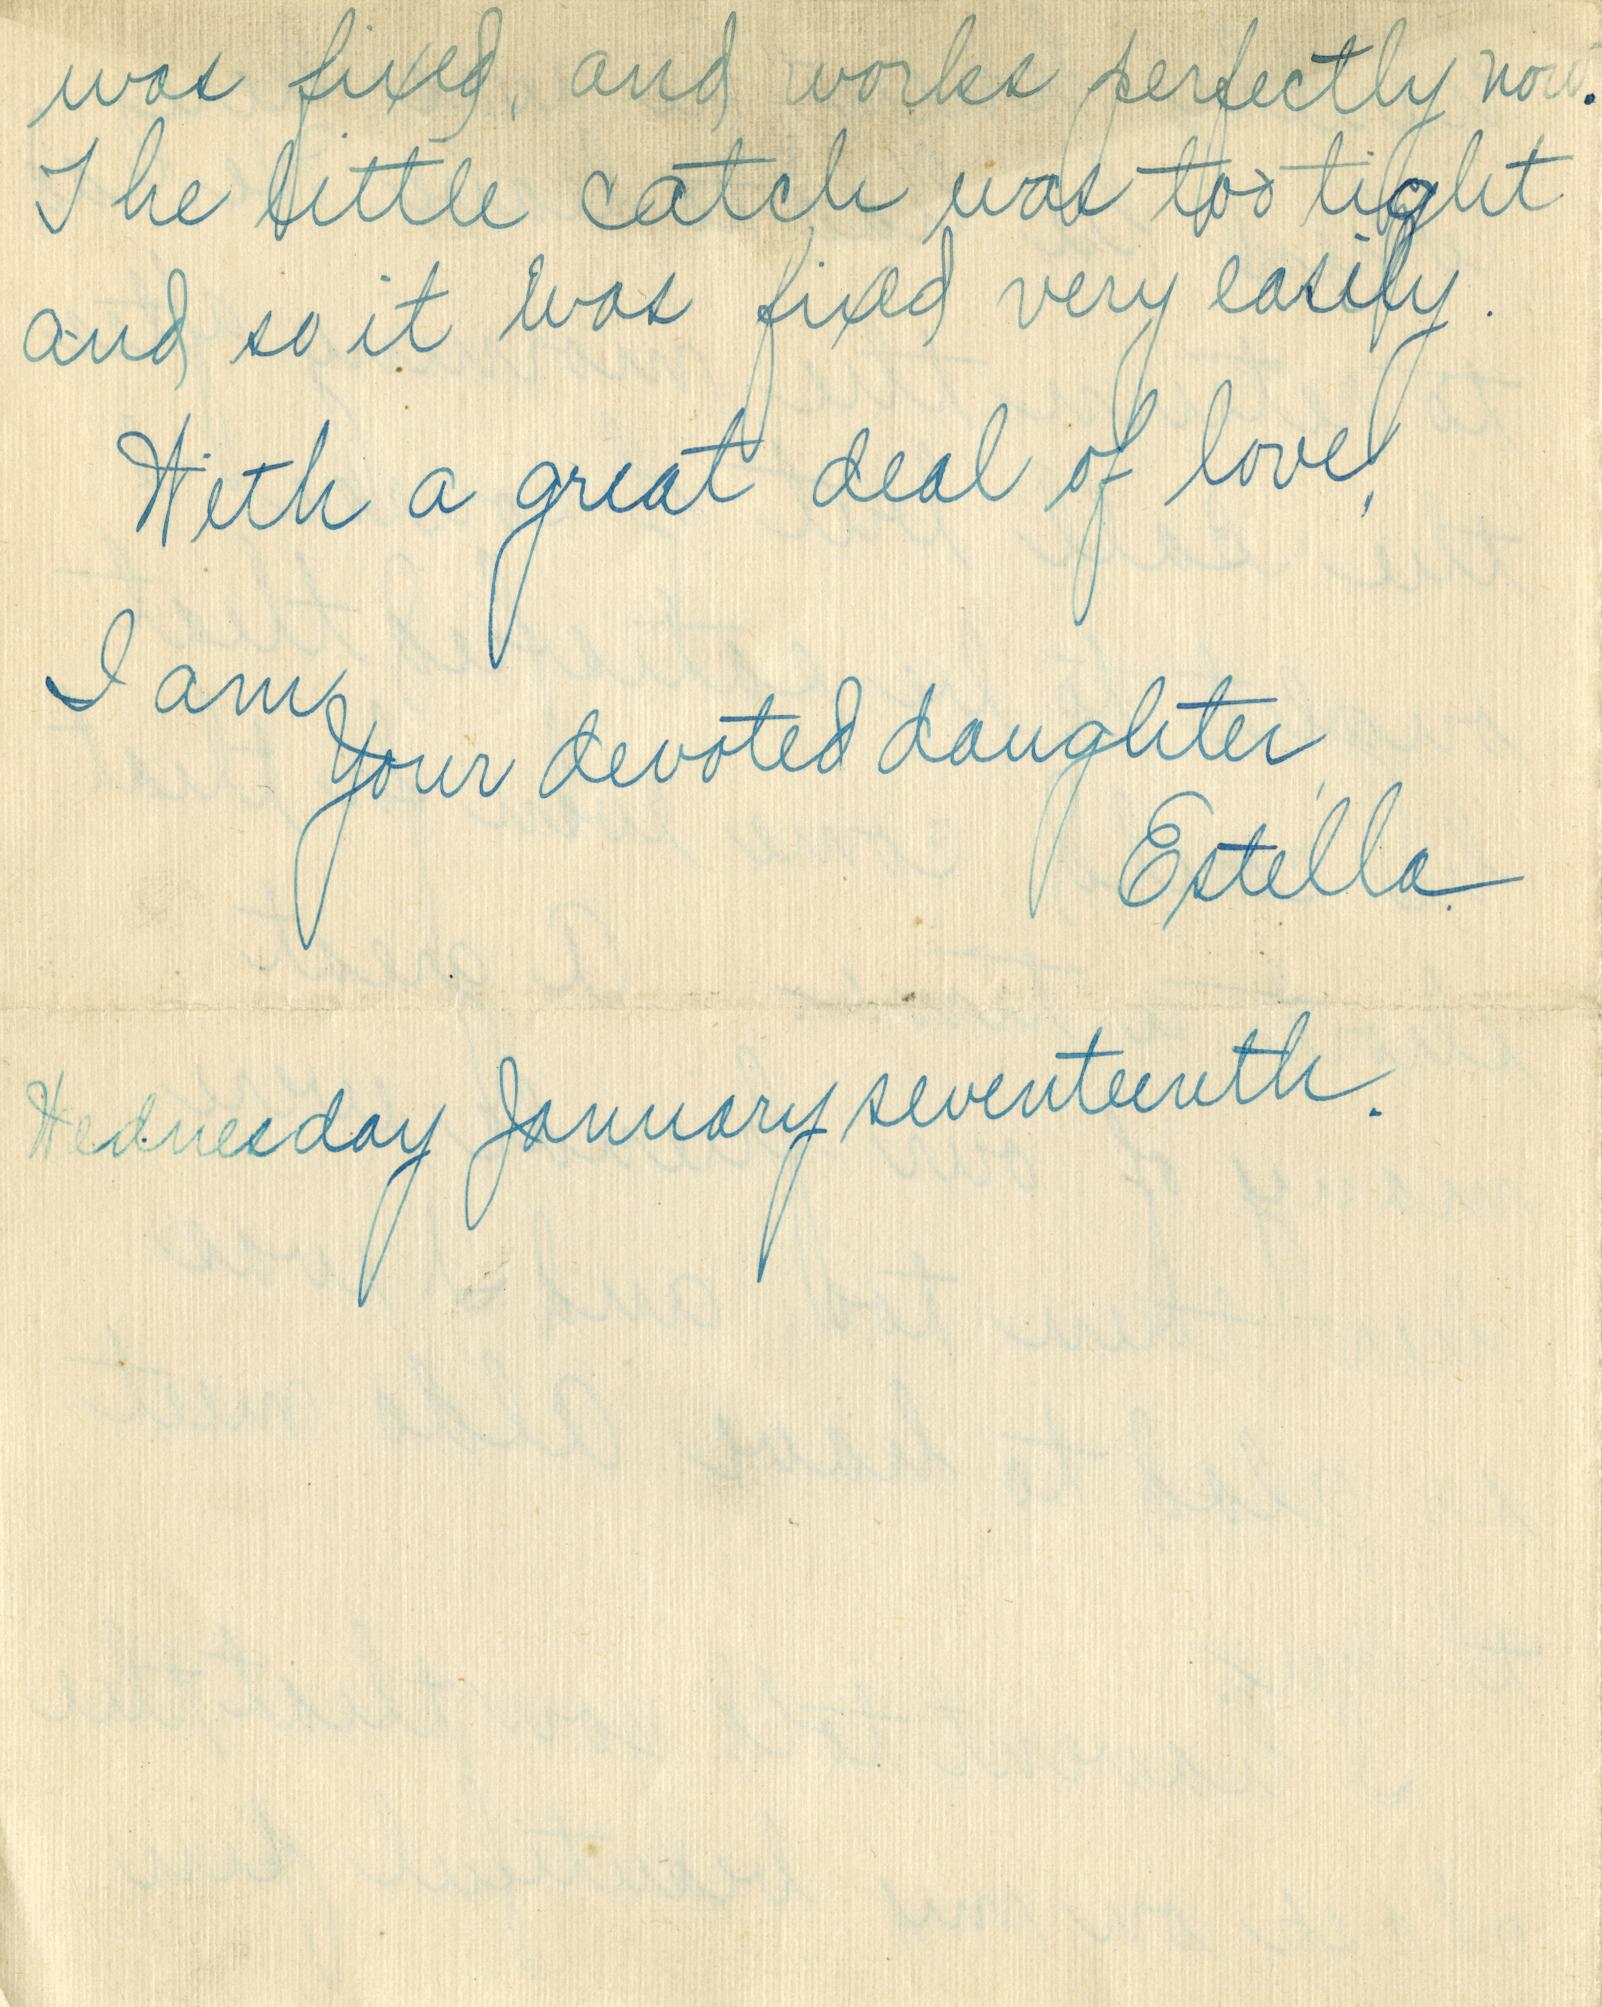 was fixed, and works perfectly now.
The little catch was too tight
and so it was fixed very easily.
With a great deal of love,
I am,
Your devoted daughter,
Estella.
Wednesday January seventeenth.